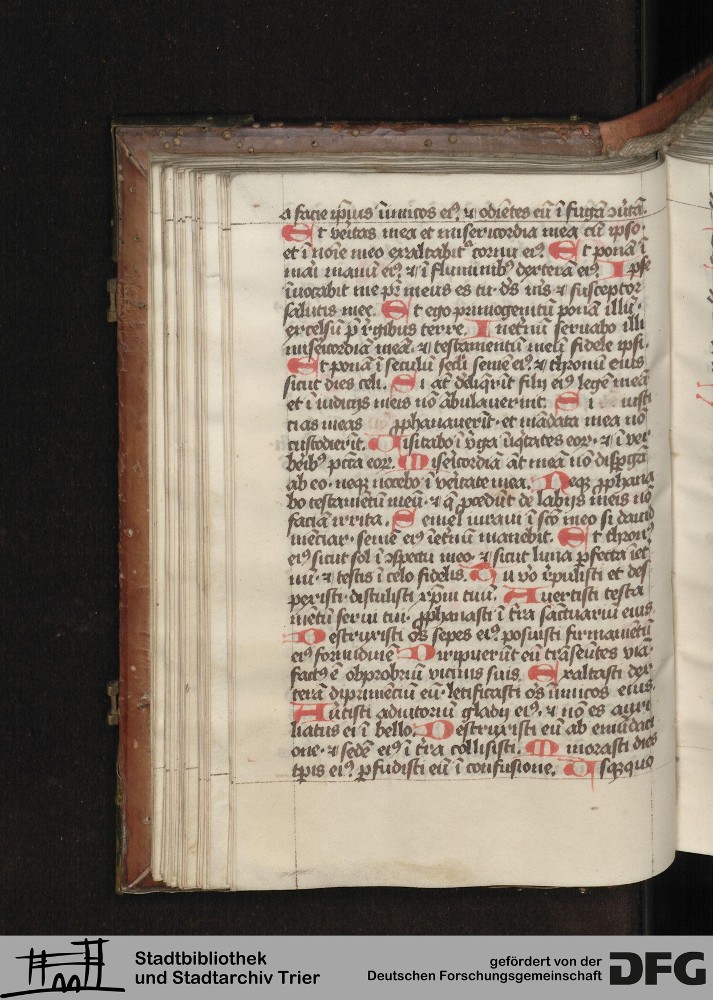 a facie ip̄ius īimicos eiꝰ ⁊ odiētes eū ī fugā ↄūtā.
Et ūitas mea et misericordia mea cū ipso·
et ī noīe meo exaltabitᷣ cornu eiꝰ. Et ponā ī
mari manū eiꝰ ⁊ ī fluminibꝰ dexterā eiꝰ. Ipse
īuocabit me pr̄ meus es tu· ds̄ mꝰ ⁊ susceptor
salutis mee. Et ego primogenitū ponā illū·
excelsū p̄ rͥgibus terre. In et̄nū seruabo illi
misericordiā meā· ⁊ testamentū meū fidele ipsi.
Et ponā ī seculū sec̄li semē eiꝰ ⁊ thronū eius
sicut dies celi. Si at̄ dēliqr̄it filij eiꝰ legē meā
et ī iudicijs meis nō ābulauerint. Si iusti
tias meas ꝓphanauerīt· et mādata mea nō
custodierīt. Uisitabo ī ūga īiqtates eoꝝ· ⁊ ī ver
beribꝰ pctā eoꝝ. Misericordiā at̄ meā nō dispgā
ab eo· neqꝫ nocebo ī ūitate mea. Neqꝫ ꝓphana
bo testamētū meū· ⁊ q̄ ꝓcedūt de labijs meis nō
faciā irrita. Semel iuraui ī scō meo si dauid
mēciar· semē eiꝰ īet̄nū manebit. Et thronꝰ
eiꝰ sicut sol ī ↄspectu meo· ⁊ sicut luna ꝑfecta īet̄
nū· ⁊ testis ī celo fidelis. Tu vō r̄pulisti et des
pexisti· distulisti xp̄m tuū. Auertisti testa
mētū serui tui· ꝓphanasti ī tr̄a sāctuariū eius
Destruxisti oēs sepes eiꝰ· posuisti firmamētū
eiꝰ formidinē. Diripuerūt eū trāseūtes viā·
factꝰ ē obprobriū vicinis suis. Exaltasti dex
terā diprimeciū eū· letificasti oēs īimicos eius
Aūtisti adiutoriū gladij eiꝰ· ⁊ nō es auxi
liatus ei ī bello. Destruxisti eū ab emūdaci
one· ⁊ sedē eiꝰ ī tr̄a collisisti. Minorasti dies
tp̄is eiꝰ ꝑfudisti eū ī confusione. Usqꝫquo
Stadtbibliothek
und Stadtarchiv Trier
gefördert von der
Deutschen Forschungsgemeinschaft DFG